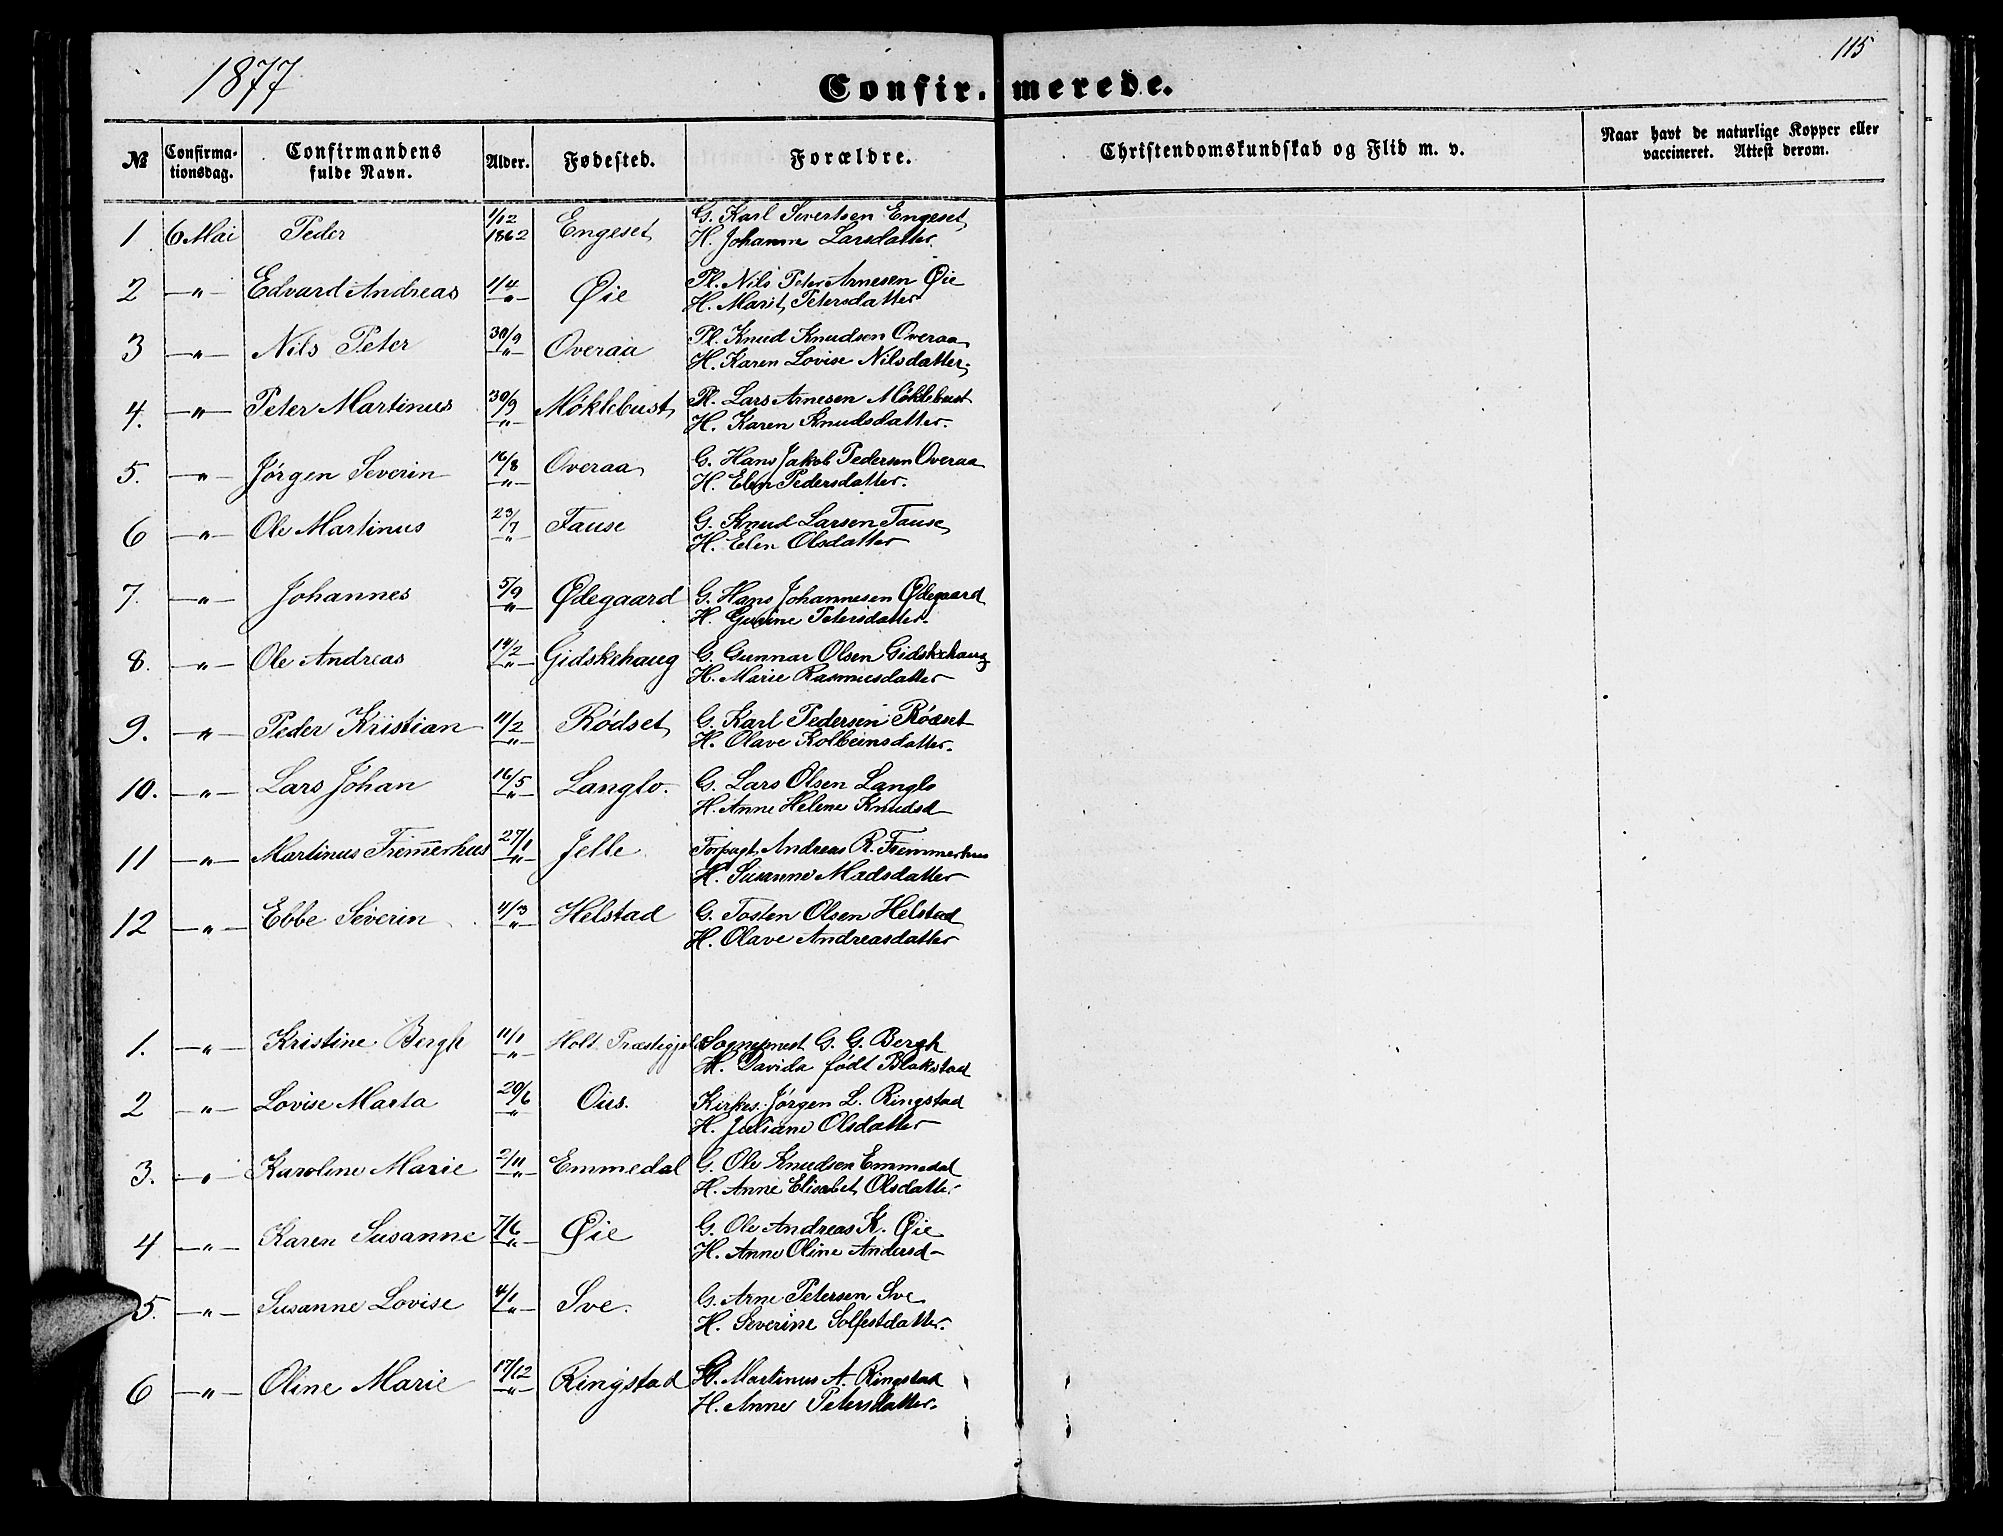 1877
115
Confir. merede.
№ Confirma-tionsdag. Confirmandens fulde Navn. Alder. Fødested. Forældre. Christendomskundskab og Flid m. v. Naar havt de naturlige Kopper eller vaccineret. Attest derom.
1 6 Mai Peder 1/12 1862 Engeset G. Karl Sivertsen Engeset
H. Johanne Larsdatter.
2 —„— Edvard Andreas 1/4 —„— Øie Pl. Nils Peter Arnesen Øie
H. Marit Petersdatter
3 —„— Nils Peter 30/9 —„— Overaa Pl. Knud Knudsen Overaa
H. Karen Lovise Nilsdatter.
4. —„— Peter Martinus 30/9 —„— Møklebust Pl. Lars Arnesen Møklebust
H. Karen Knudsdatter.
5. —„— Jørgen Severin 16/8 —„— Overaa G. Hans Jakob Pedersen Overaa
H. Elen Pedersdatter.
6 —„— Ole Martinus 23/7 —„— Fause G. Knud Larsen Fause
H. Elen Olsdatter
7. —„— Johannes 5/9 —„— Ødegaard G. Hans Johannesen Ødegaard
H. Petersdatter.
8. —„— Ole Andreas 14/2 —„— Gidskehaug G. Gunnar Olsen Gidskehaug
H. Marie Rasmusdatter
9. —„— Peder Kristian 11/2 —„— Rødset G. Karl Pedersen Rødset
H. Olave Kolbeinsdatter.
10. —„— Lars Johan 16/5 —„— Langlo. G. Lars Olsen Langlo
H. Anne Helene Knudsd
11 —„— Martinus Fremmerhus 27/1 —„— Jelle Forpagt. Andreas R. Fremmerhus
H. Susanne Madsdatter
12 —„— Ebbe Severin 4/3 —„— Helstad G. Tosten Olsen Helstad
H. Olave Andreasdatter
1. —„— Kristine Bergh 11/1 —„— Holt Præstegjeld Sogneprest G. G. Bergh
H. Davida født Blakstad
2 —„— Lovise Marta 20/6 —„— Ous. Kirkes. Jørgen L. Ringstad
H. Juliane Olsdatter
3. —„— Karoline Marie 2/11 —„— Emmedal G. Ole Knudsen Emmedal
H. Anne Elisabet Olsdatter
4 —„— Karen Susanne 7/6 —„— Øie G. Ole Andreas K. Øie
H. Anne Oline Andersd—
5. —„— Susanne Lovise 4/1 —„— Sve. G. Arne Petersen Sve
H. Severine Solfestdatter.
6 —„— Oline Marie 17/12 —„— Ringstad G. Martinus A. Ringstad
H. Anne Petersdatter.